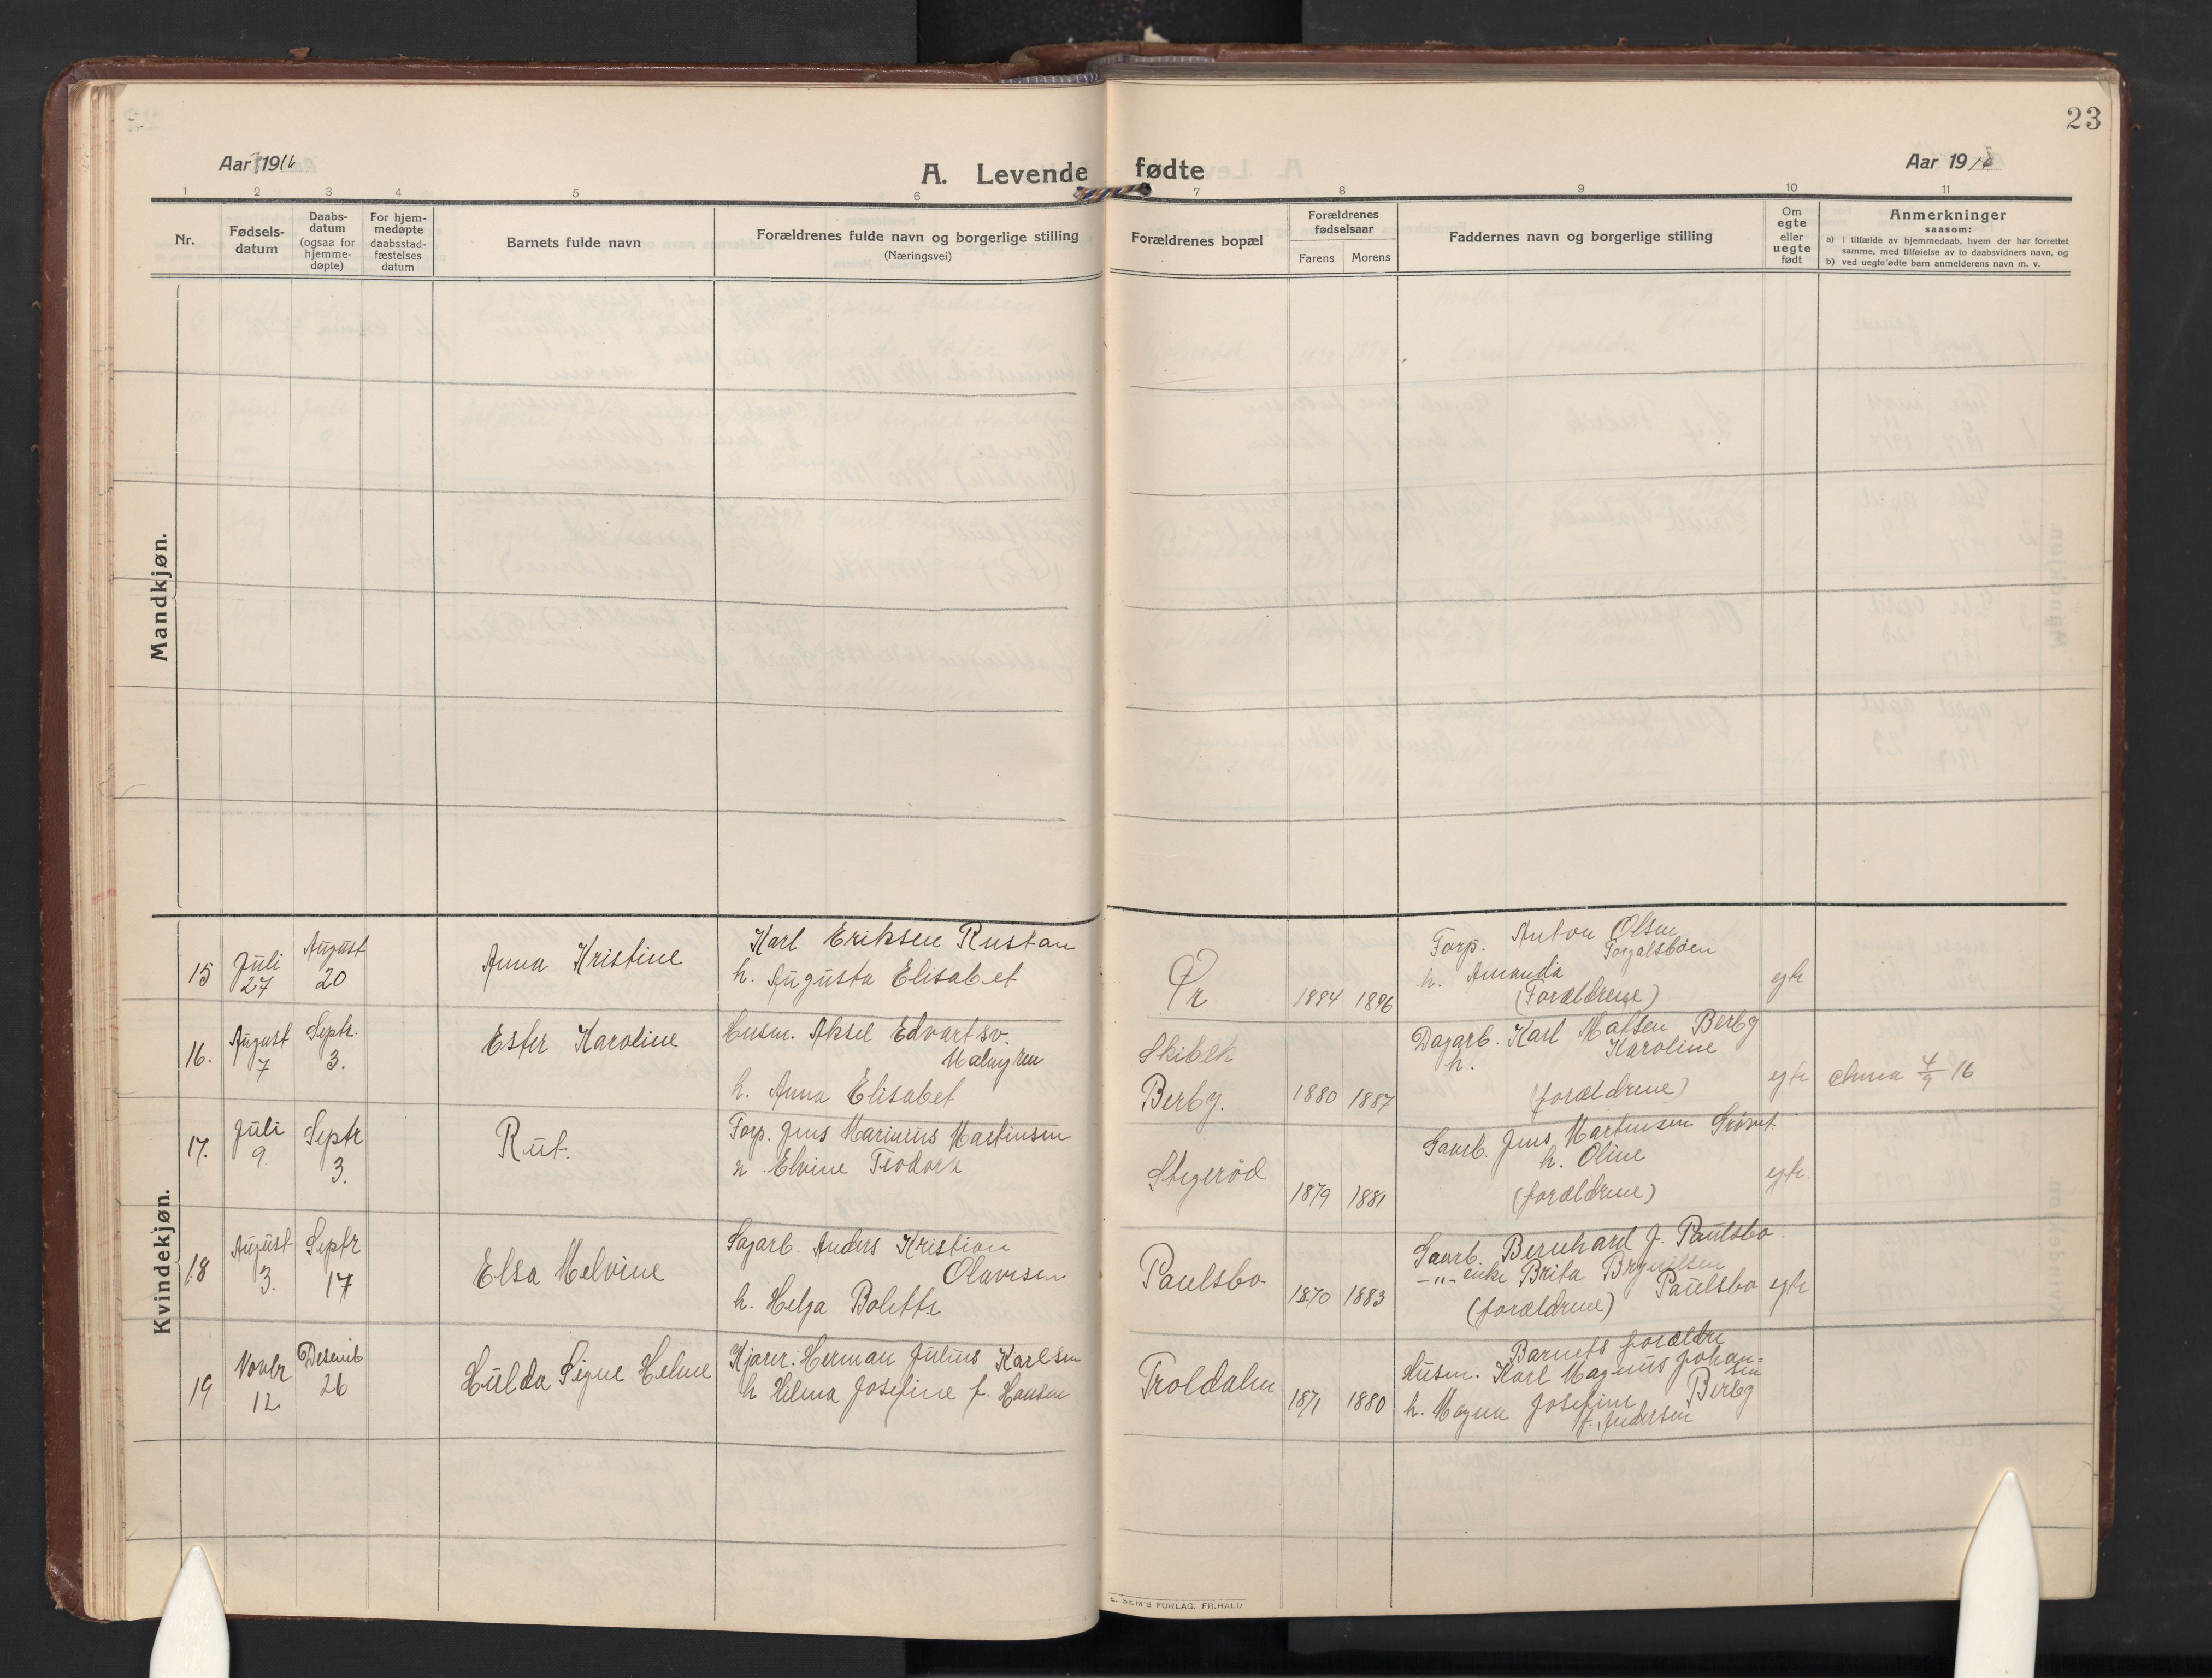 23
Aar 1916
A. Levende fødte
Aar 1916
1 2 3 4 5 6 7 8 9 10 11
Nr.
Fødsels-
datum
Daabs-
datum
(ogsaa for
hjemme-
døpte)
For hjem-
medøpte
daabsstad-
fæstelses
datum
Barnets fulde navn
Forældrenes fulde navn og borgerlige stilling
(Næringsvei)
Forældrenes bopæl
Forældrenes
fødselsaar
Farens Morens
Faddernes navn og borgerlige stilling
Om
egte
eller
uegte
født
Anmerkninger
saasom:
a) i tilfælde av hjemmedaab, hvem der har forrettet
samme, med tilføielse av to daabsvidners navn, og
b) ved uegte fødte barn anmelderens navn m. v.
Mandkjøn.
Kvindekjøn.
15
Juli
27
August
20
Anna Kristine
Karl Eriksen Rustan
h. Augusta Elisabet
Ør
1884 1886
Forp. Anton Olsen
Torgalsbøen
h. Amanda
(Forældrene)
egte
16.
August
7
Septr.
3.
Ester Karoline
Husm. Aksel Edvart sv.
Malmgren
h. Anna Elisabet
Skibelk
Berby.
1880 1887
Dagarb. Karl Matsen Berby
h. Karoline
(forældrene)
egte
4/9 16
17.
Juli
9
Septr
3.
Rut.
Forp. Jens Marinius Martinsen
h Elvine Teodora
Stegerød
1879 1881
Jens Martinsen
h. Oline
(forældrene)
egte.
18
August
3.
Septr
17
Elsa Melvine
Sagarb. Anders Kristian
Olavesen
h. Helga Bolette
Paulsbo
1870 1883
Bernhard J. Paulsbo
-"- enke Brita Brynilsen
Paulsbo
(forældrene)
egte
19
Novbr
12
Desemb
26
Hulda Signe Helene
Kjører. Herman Julius Karlsen
h Hilma Josefine f. Hansen
Troldalen
1871 1880
Barnets forældre
Husm. Karl Magnus Johan=
sen
Berby
h. Magna Josefine
f. Andersen
E. SEM'S FORLAG. FR.HALD